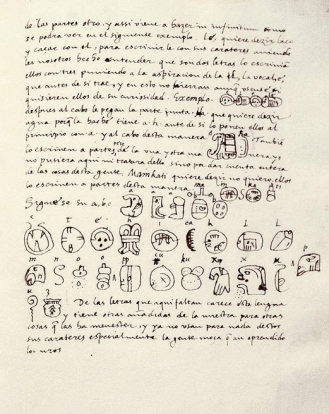 de las partes otro, y assi viene a hazer in infinitum como
se podra ver en el siguiente exemplo. Lé, quiere dezir laço
y caçar con el, para escrivirle con sus carateres aviendo
les nosotros hecho entender que son dos letras lo escrivian
ellos con tres puniendo a la aspiracion de la l, la vocal é,
que antes de si trae, y en esto no hierran
quisieren ellos de su curiosidad. Exemplo.
despues al cabo le pegan la parte junta. ha que quiere dezir
agua porq̃ la hache tiene a. h. ante de si lo ponen ellos al
principio con a. y al cabo desta manera Tambiē
lo escriven a partes de la una y otra manera, y
no pusiera aqui ni tratara dello sino por dar cuenta entera
de las cosas desta gente. Mainkati quiere dezir no quiero, ellos
lo escriven a partes desta manera
ma i n ka ti
Siguese su a, b, c
c t é h i ca k L L
m n o o p pp cu ku x x u
u z
De las letras que aqui faltan carece esta lengua
y tiene otras añadidas de la nuestra para otras
cosas q̃ las ha menester, y ya no usan para nada destos
sus carateres especialmente la gente moça q̃ an aprendido
los nros